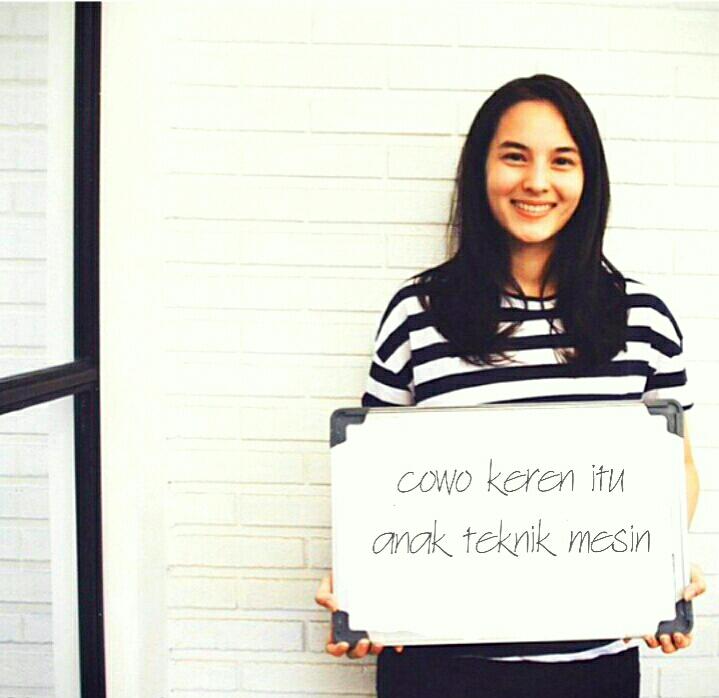 cowo keren itu
anak teknik mesin